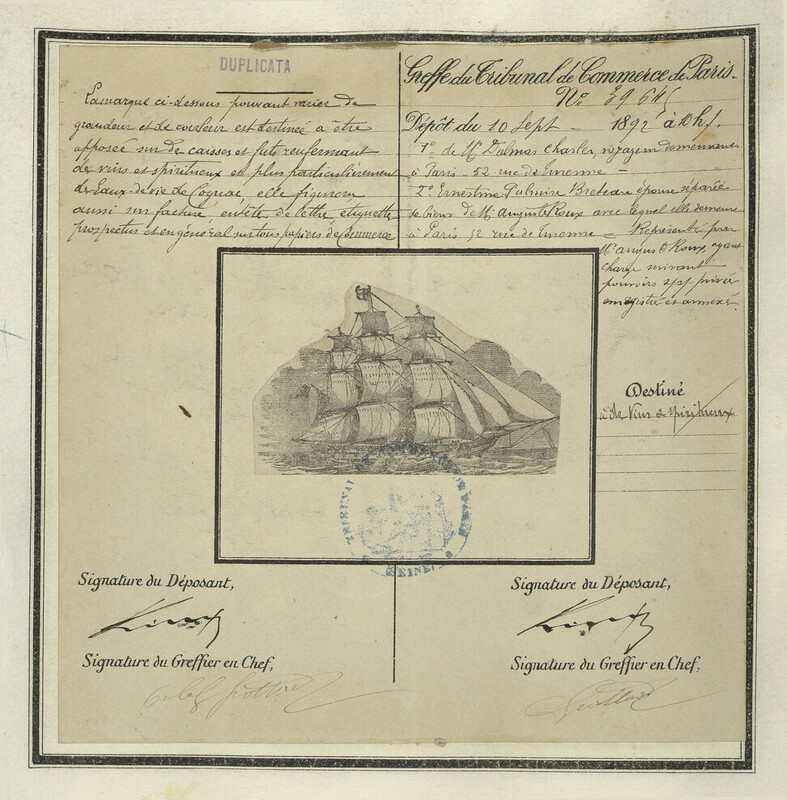 DUPLICATA
La marque ci-dessous pouvant varier de
grandeur et de couleur est destinée à être
apposée sur de caisses et futs renfermant
des vins et spiritueux et plus particulièrement
des Eaux-de-vie de Cognac, elle figurera
aussi sur facture, entête de lettre, etiquette
prospectus et en général sur tous papiers de Commerce
Greffe du Tribunal de Commerce de Paris.
No. 39 645
Dépôt du 10 Sept 1892 à 2h!
1º de Mr Dalmas Charles, voyageur demeurant
à Paris - 52 rue de Turenne -
2º Ernestine Palmire Breteau épouse séparée
de biens de Mr August Roux avec lequel elle demeure
à Paris 52 rue de Turenne = Représentés par
Mr August Roux, ayant
charge suivant
pouvoirs s/s/ privés
enregistré et annexé.
Destiné
à des Vins & spiritueux
TRIBUNAL DE COMMERCE
SEINE
Signature du Déposant,
Signature du Déposant,
Signature du Greffier en Chef,
Signature du Greffier en Chef,